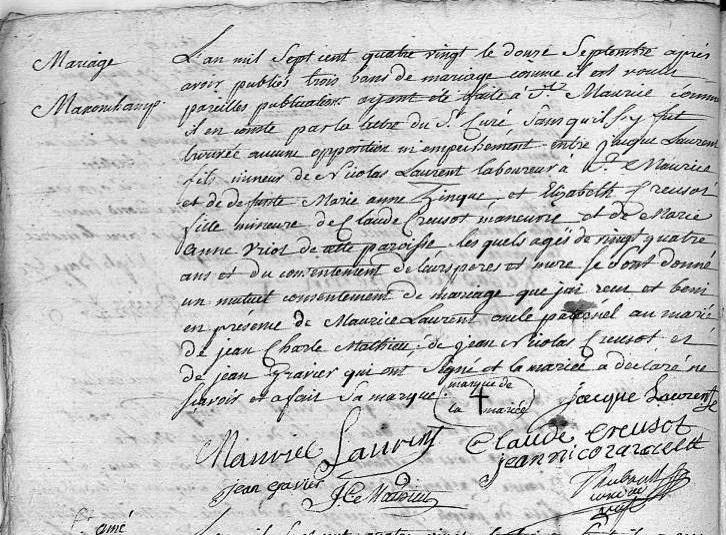 Mariage
Maxonchamp.
L'an mil Sept cent quatre vingt le douze Septembre après
avoir publiés trois bans de mariage comme il est voulu
pareilles publications ayant été faite à St. Maurice comme
il en conste par la lettre du Sr. Curé Sans qu'il s'y fut
trouvée aucune opposition ni empechement entre Jacque Laurent
fils mineur de Nicolas Laurent laboureur à St. Maurice
et de defunte Marie anne Zinque et Elizabeth Creusot
fille mineure de Claude Creusot manœuvre et de Marie
Anne Vriot de cette paroisse les quels agés de vingt quatre
ans et du consentement de leurs peres et mere se sont donné
un mutuel consentement de mariage que j'ai reçu et beni
en présence de Maurice Laurent oncle paternel au marié
de jean Charle Mathieu, de jean Nicolas Creusot et
de jean Gravier qui ont Signé et la mariée a déclaré ne
sçavoir et a fait Sa marque
marque de
la mariée
jacque Laurent
Mauriee Laurent
Claude creusot
jean gravier